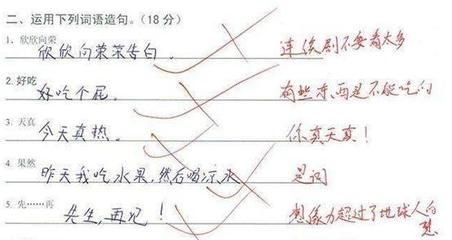 二、运用下列词语造句。(18分)
1、欣欣向荣
欣欣向荣荣告白。
连续剧不要看太多
2. 好吃
好吃个屁。
有些东西是不能吃的
3. 天真
今天真热。
你真天真!
4. 果然
昨天我吃水果,然后喝凉水
是词
5. 先……再
先生,再见!
想像力超过了地球人的想